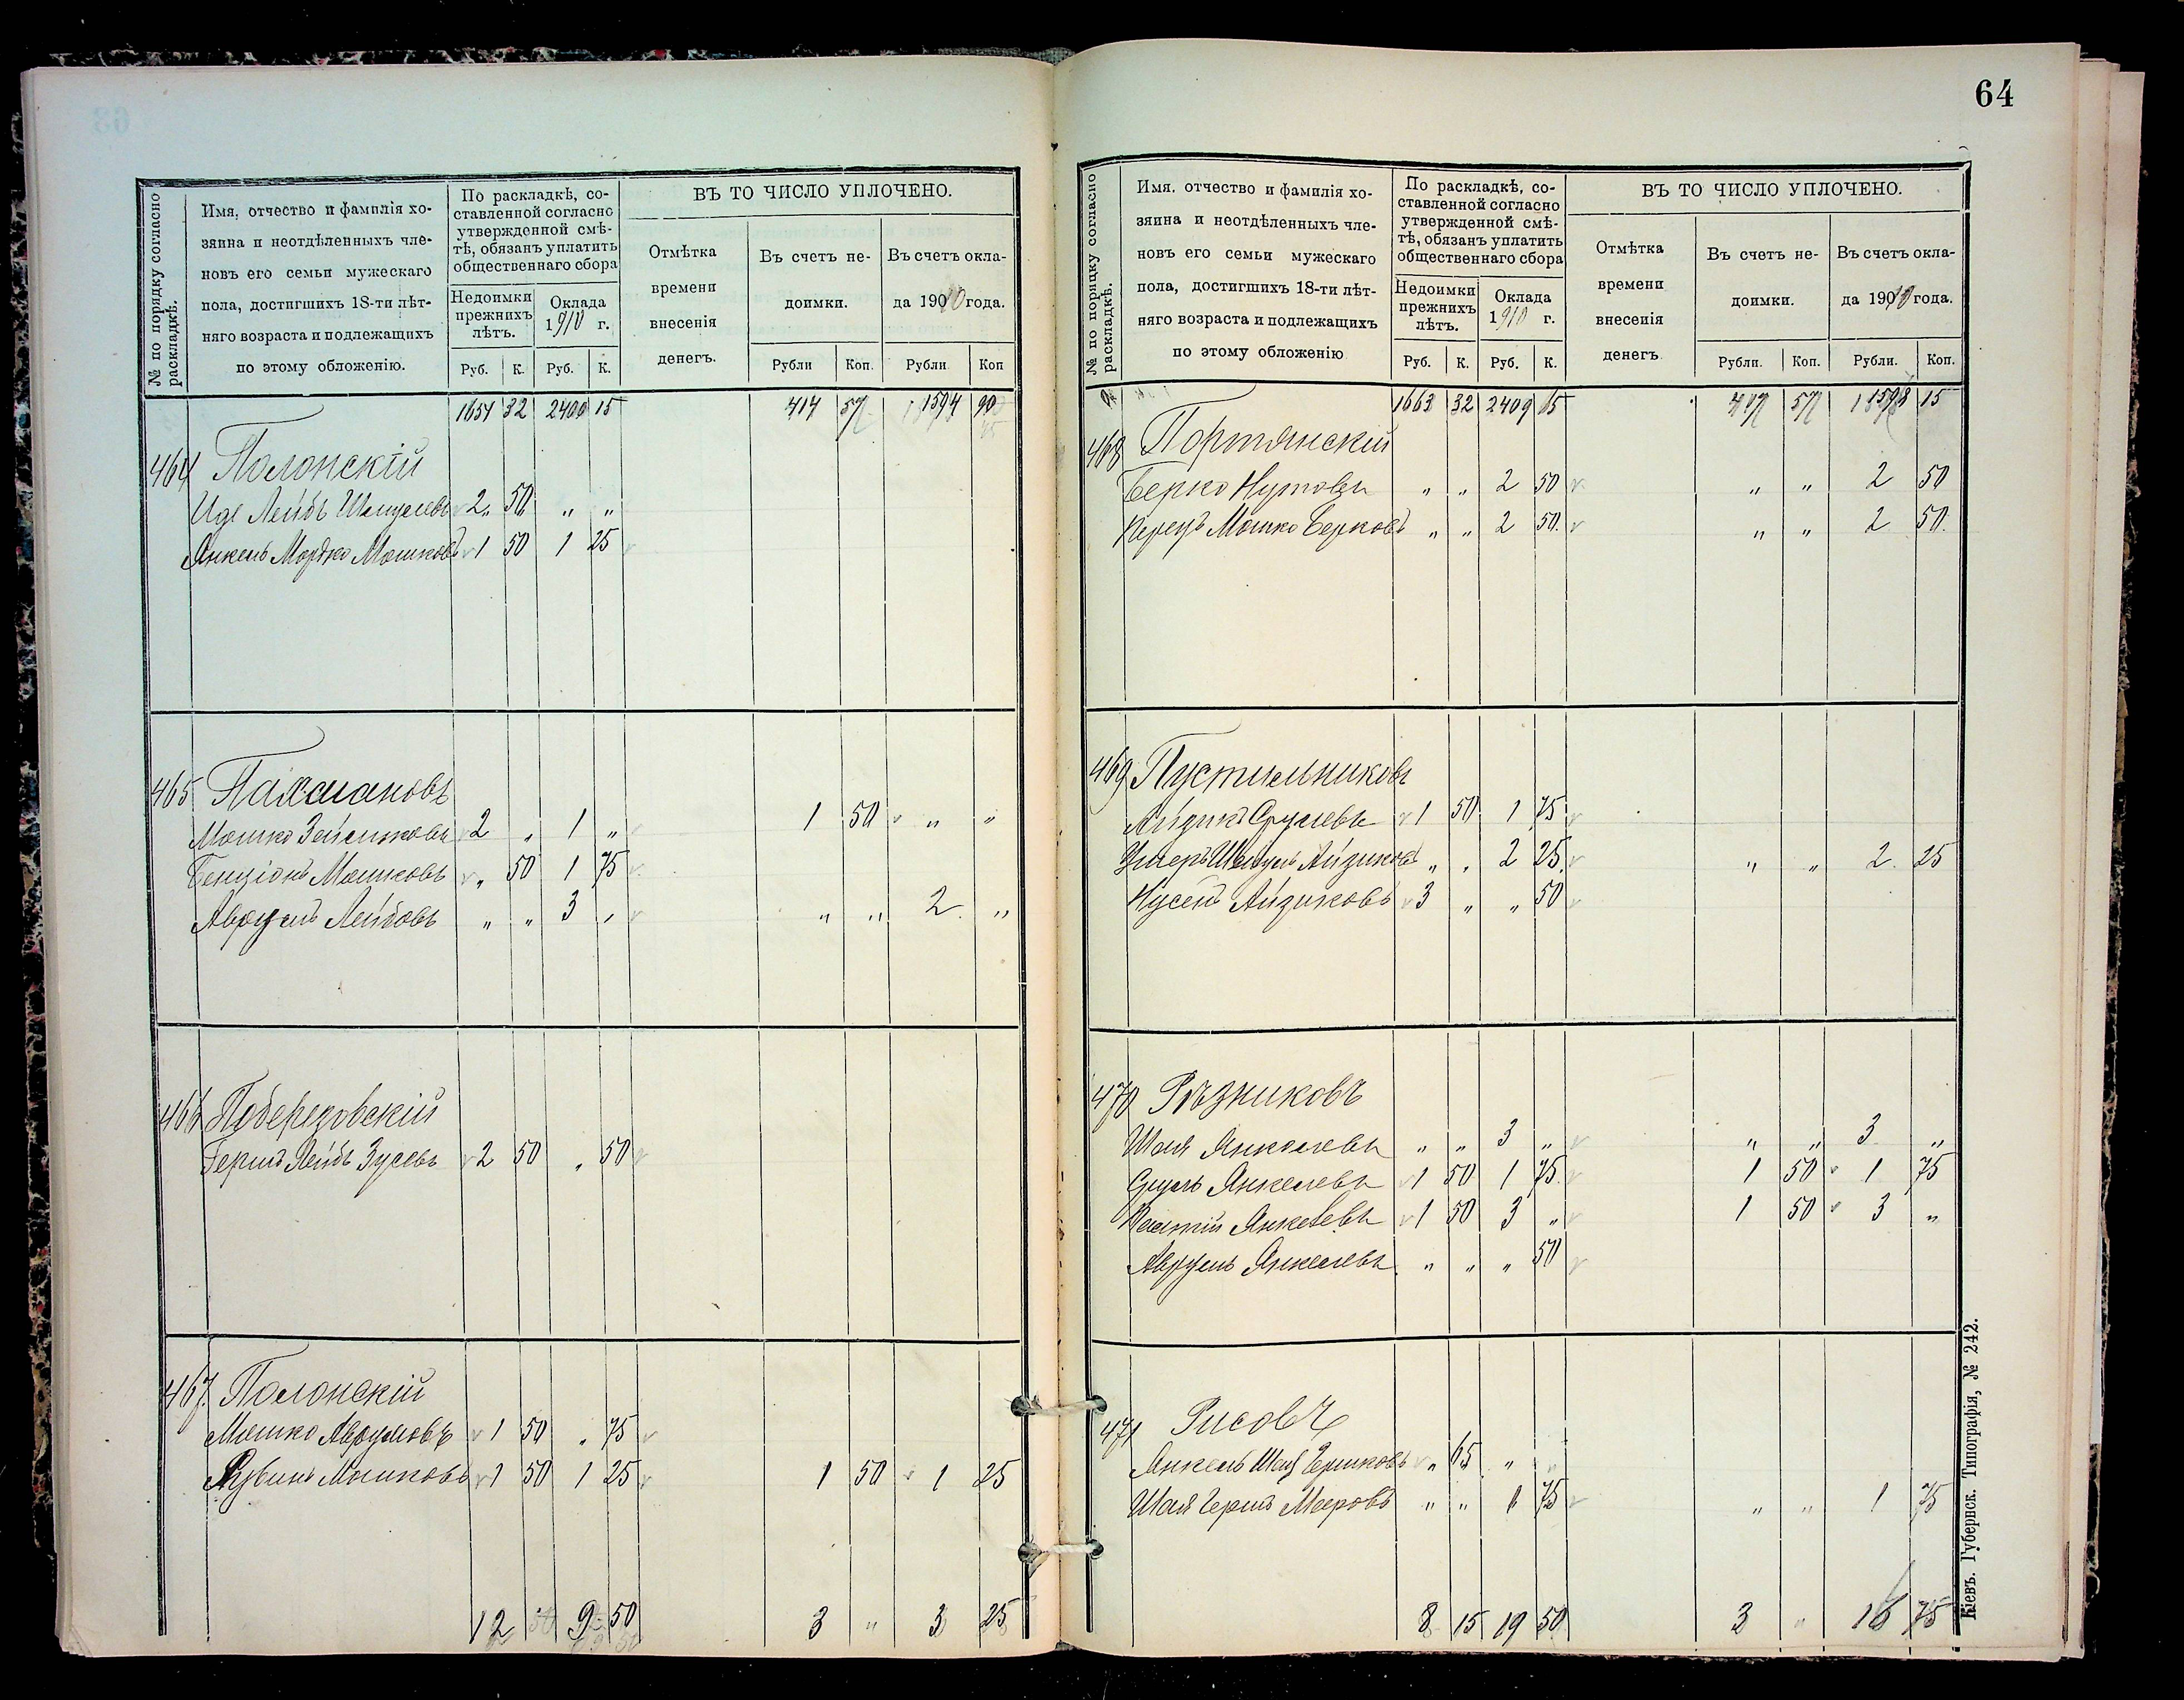 64
№ по порядку согласно раскладкѣ.
Имя, отчество и фамилія хо-
зяина и неотдѣленныхъ чле-
новъ его семьи мужескаго
пола, достигшихъ 18-ти лѣт-
няго возраста и подлежащихъ
по этому обложенію.
По раскладкѣ, со-
ставленной согласно
утвержденной смѣ-
тѣ, обязанъ уплатить
общественнаго сбора
Недоимки прежнихъ лѣтъ.
Оклада 1910 г.
Руб. К. Руб. К.
ВЪ ТО ЧИСЛО УПЛОЧЕНО.
Отмѣтка
времени
внесенія
денегъ.
Въ счетъ не-
доимки.
Въ счетъ окла-
да 1910 года.
Рубли Коп. Рубли Коп
1651 32 2400 15 414 57 1594 90
464 Полонскій
Иде Лейбъ Шмулевъ 2 50 " "
Янкель Мордко Мошковъ 1 50 1 25
465 Пахмановъ
Мошко Зейликовъ 2 " 1 " 1 50 " "
Бенціонъ Мошковъ " 50 1 75
Аврумъ Лейбовъ " " 3 " " " 2 "
466 Поберезовскій
Гершъ Лейбъ Зусевъ 2 50 " 50
467. Полонскій
Мошко Аврумовъ 1 50 " 75
Рувинъ Мошковъ 1 50 1 25 1 50 1 25
12 9 50 3 " 3 25
№ по порядку согласно раскладкѣ.
Имя, отчество и фамилія хо-
зяина и неотдѣленныхъ чле-
новъ его семьи мужескаго
пола, достигшихъ 18-ти лѣт-
няго возраста и подлежащихъ
по этому обложенію
По раскладкѣ, со-
ставленной согласно
утвержденной смѣ-
тѣ, обязанъ уплатить
общественнаго сбора
Недоимки прежнихъ лѣтъ.
Оклада 1910 г.
Руб. К. Руб. К.
ВЪ ТО ЧИСЛО УПЛОЧЕНО.
Отмѣтка
времени
внесенія
денегъ.
Въ счетъ не-
доимки.
Въ счетъ окла-
да 1910 года.
Рубли. Коп. Рубли. Коп.
1663 32 2409 65 417 57 1598 15
468 Портянскій
Берко Нутовъ " " 2 50 " " 2 50
Перецъ Мошко Берковъ " " 2 50. " " 2 50.
469 Пустильниковъ
Айзикъ Срулевъ 1 50 1 75
Ушеръ Шмуль Айзиковъ " " 2 25 " " 2 25
Нусенъ Айзиковъ 3 " " 50
470 Рѣзниковъ
Шая Янкелевъ " " 3 " " " 3 "
Сруль Янкелевъ 1 50 1 75 1 50 1 75
Янкелевъ 1 50 3 " 1 50 3 "
Аврумъ Янкелевъ " " " 50
471 Рисовъ
Янкель Шая Гершковъ " 65 "
Шая Гершъ Мееровъ " " 1 75 " " 1 75
8 15 19 50 3 " 16 75
Кіевъ. Губернск. Типографія, № 242.